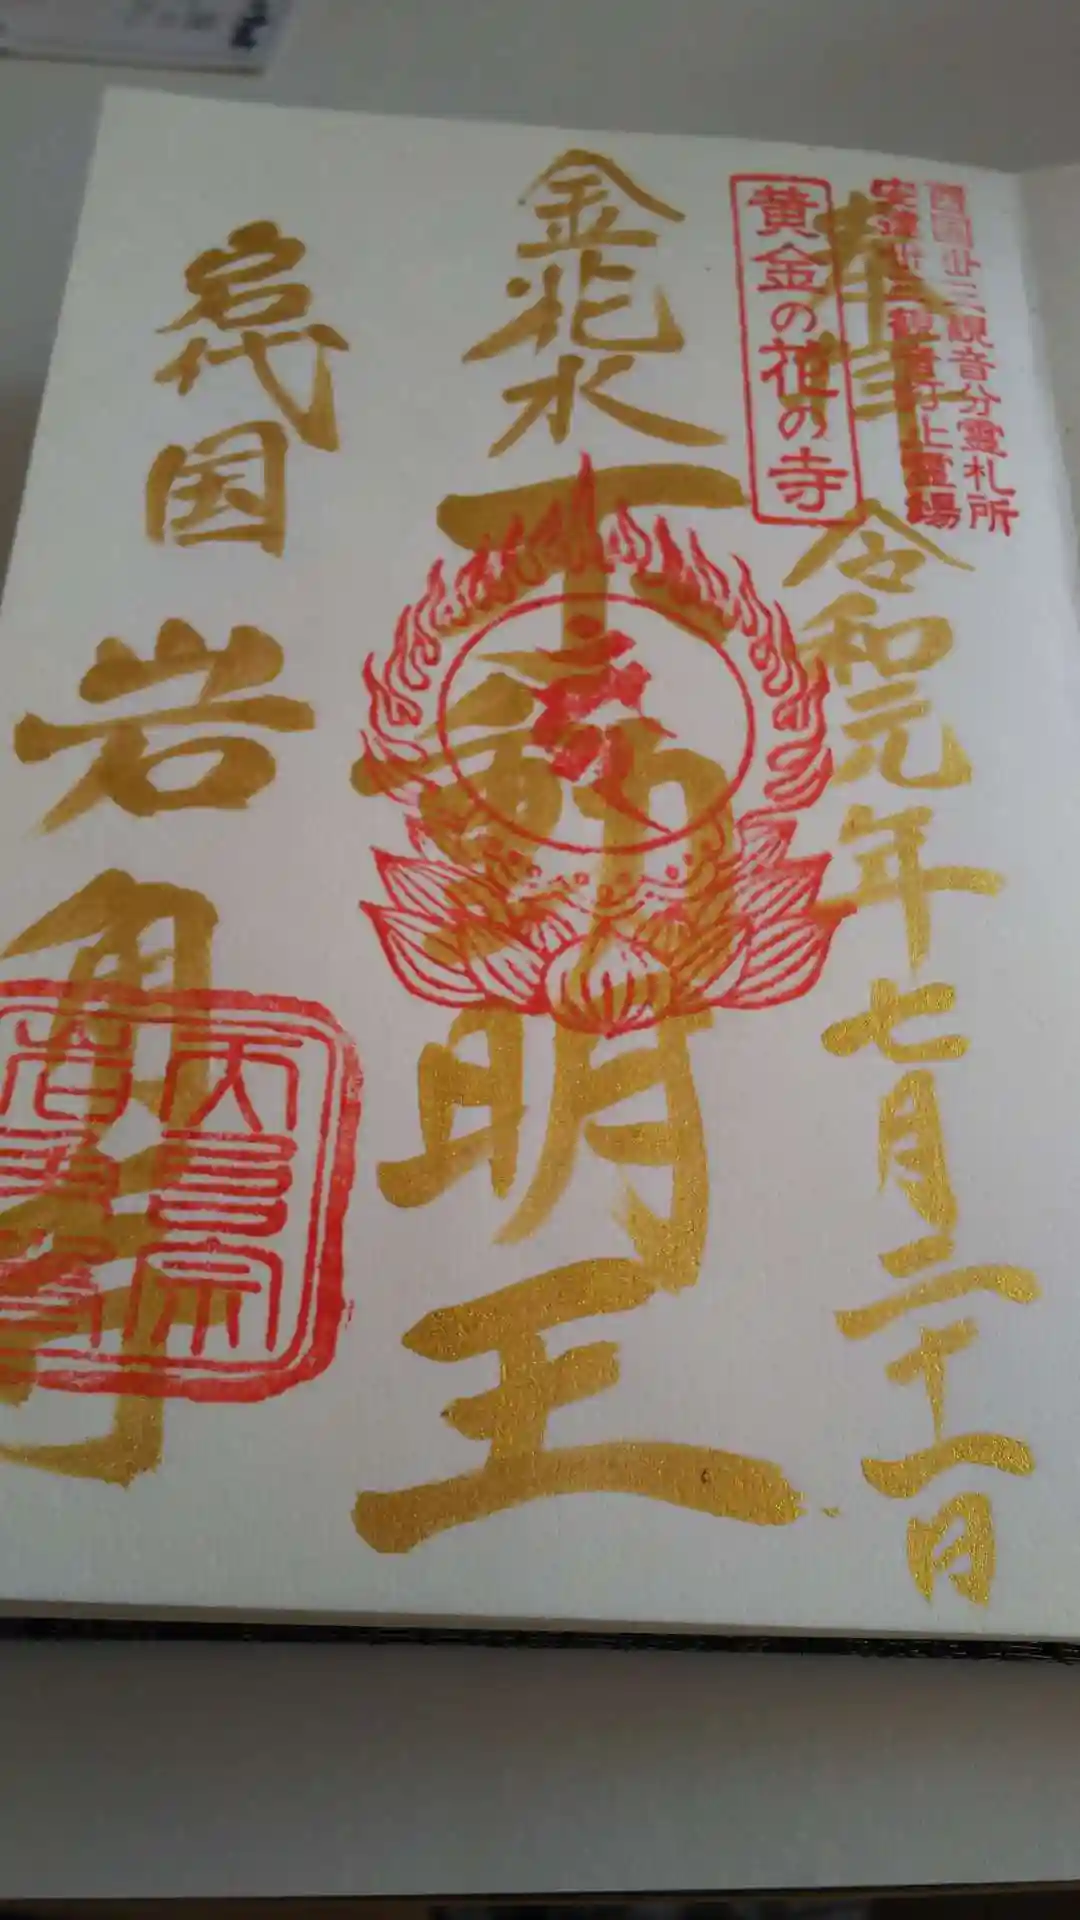 西国卅三観音分霊札所
安達卅三観音打止霊場
奉拝 令和元年七月二十一日
黄金の花の寺
金花水
不動明王
岩代国
岩角寺
天台宗